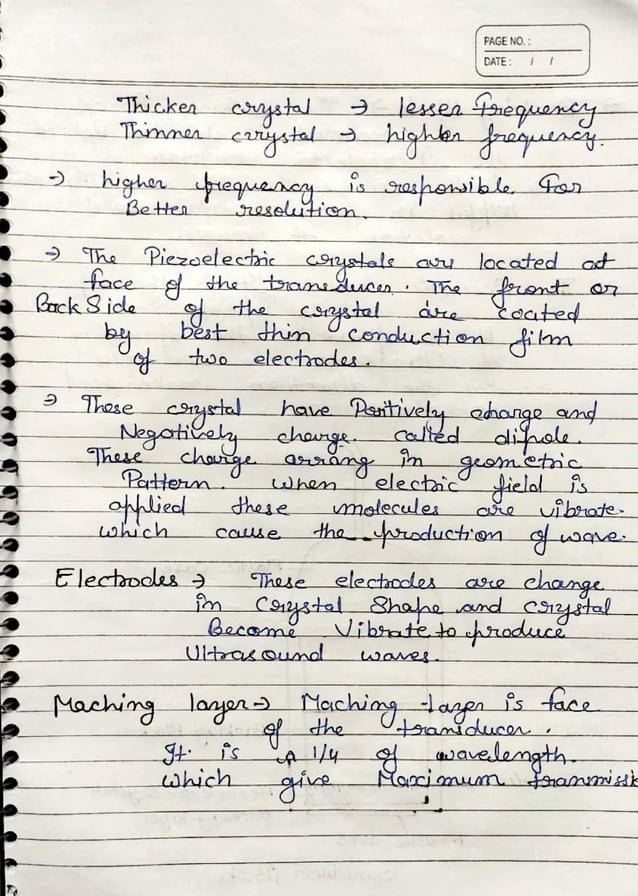 PAGE NO. :
DATE : / /
Thicker crystal → lesser frequency
Thinner crystal → higher frequency.
→ higher frequency is responsible For
Better resolution.
→ The Piezoelectric crystals are located at
face of the transducer. The front or
Back Side of the crystal are coated
by best thin conduction film
of two electrodes.
→ These crystal have Positively charge and
Negatively charge. called dipole.
These charge arrang in geometric
Pattern. when electric field is
applied these molecules are vibrate.
which cause the production of wave.
Electrodes → These electrodes are change
in Crystal Shape and crystal
Become Vibrate to produce
Ultrasound waves.
Maching layer → Maching layer is face
of the transducer.
It is 1/4 of wavelength.
which give Maximum